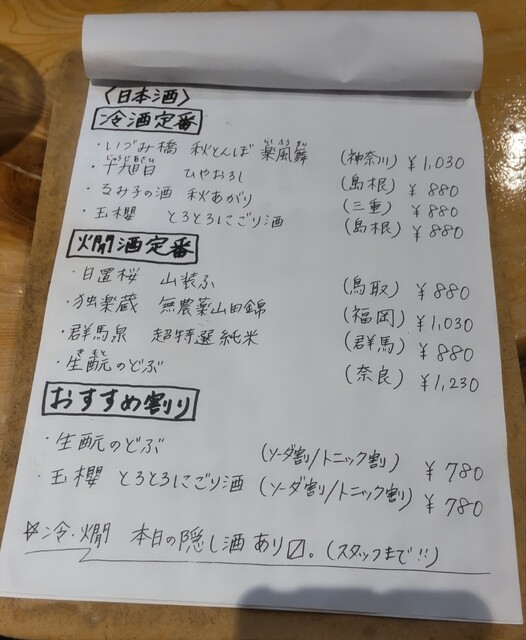 〈日本酒〉
冷酒定番
・いづみ橋 秋とんぼ 楽風舞(らくふうまい) (神奈川) ¥1,030
・十旭日(じゅうじあさひ) ひやおろし (島根) ¥880
・るみ子の酒 秋あがり (三重) ¥880
・玉櫻 とろとろにごり酒 (島根) ¥880
燗酒定番
・日置桜 山装ふ (鳥取) ¥880
・独楽蔵 無農薬山田錦 (福岡) ¥1,030
・群馬泉 超特選純米 (群馬) ¥880
・生酛(きもと)のどぶ (奈良) ¥1,230
おすすめ割り
・生酛のどぶ (ソーダ割/トニック割) ¥780
・玉櫻 とろとろにごり酒 (ソーダ割/トニック割) ¥780
☆冷・燗 本日の隠し酒あり〼。(スタッフまで!!)